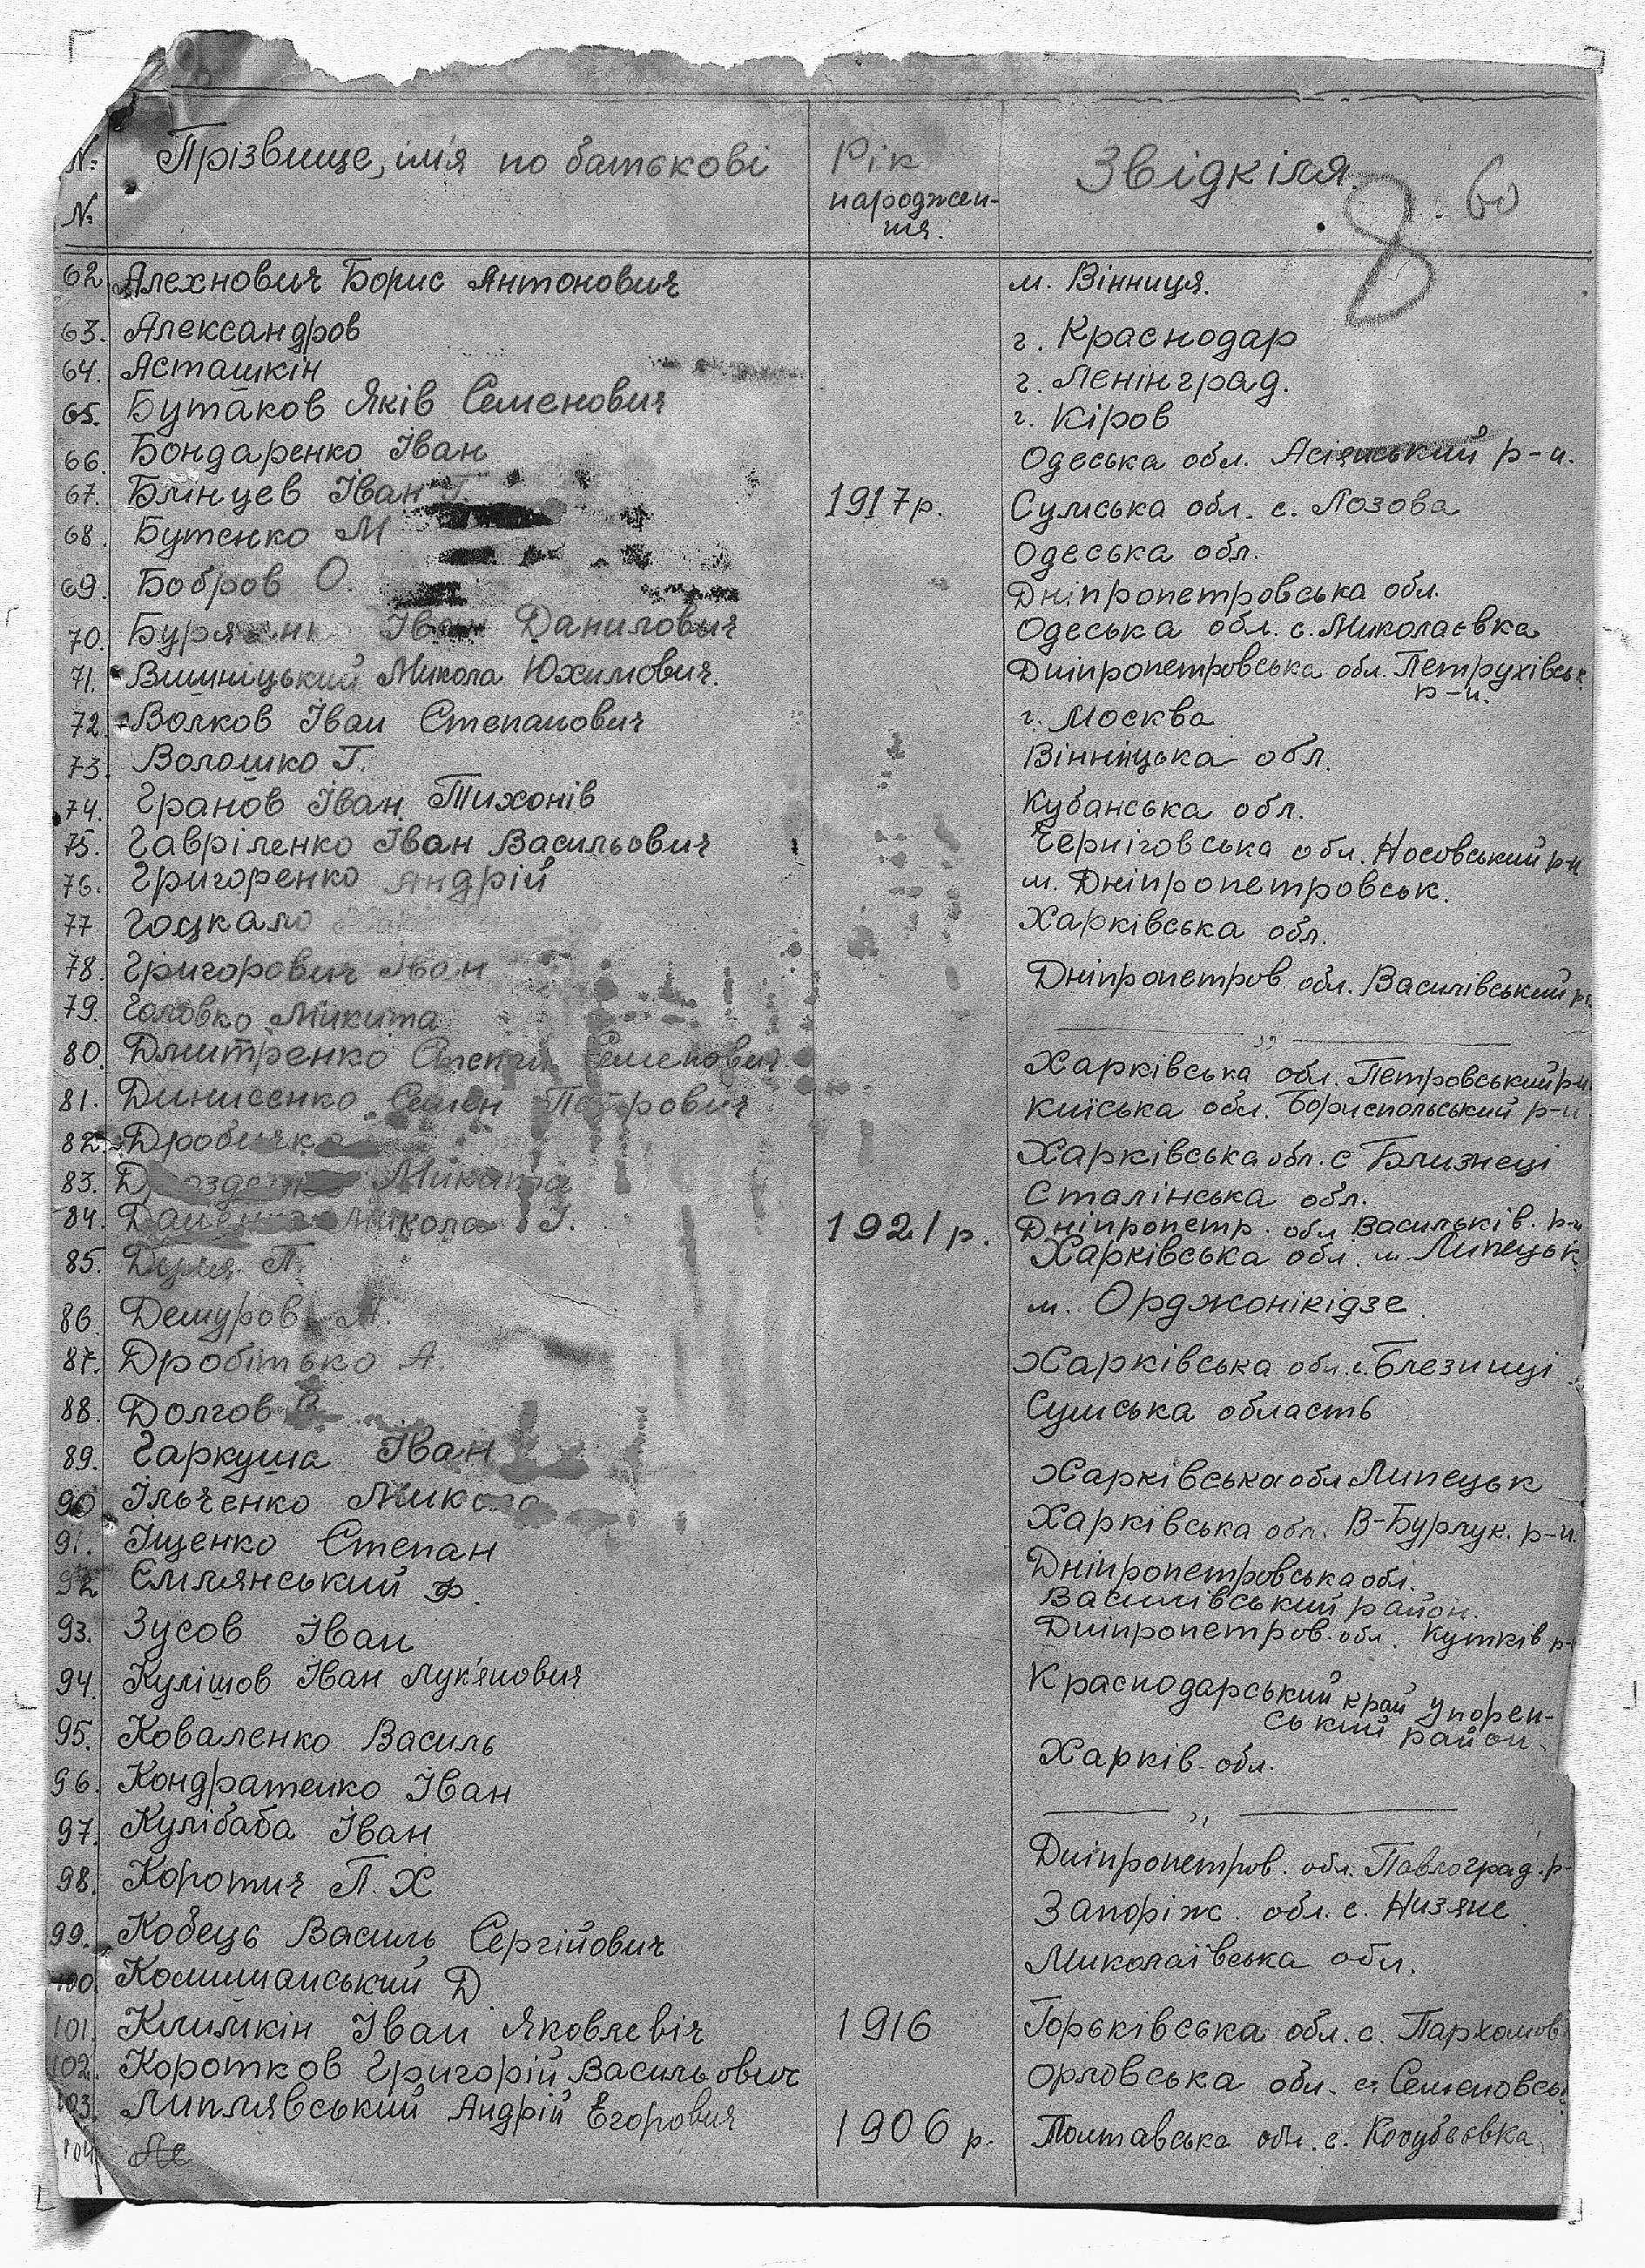 № № Прізвище, ім'я по батькові Рік народжен-ня. Звідкіля.
8 60
62. Алехнович Борис Антонович м. Вінниця.
63. Александров г. Краснодар
64. Асташкін г. Ленінград.
65. Бутаков Яків Семенович г. Кіров
66. Бондаренко Іван Одеська обл. р-н.
67. Блінцев Іван Г. 1917р. Сумська обл. с. Лозова
68. Бутенко М Одеська обл.
69. Бобров О. Дніпропетровська обл.
70. Іван Данилович Одеська обл. с. Миколаєвка
71. Вишніцький Микола Юхимович. Дніпропетровська обл. Петрухівськ. р-н.
72. Волков Іван Степанович г. Москва
73. Волошко Г. Вінницька обл.
74. Гранов Іван Тихонів Кубанська обл.
75. Гавріленко Іван Васильович Черніговська обл. Носовський р-н
76. Григоренко Андрій м. Дніпропетровськ.
77 Гоцкало Харківська обл.
78. Григорович Іван Дніпропетров обл. Василівський р-
79. Головко Микита — „ —
80. Дмитренко Семенович Харківська обл. Петровський р-н.
81. Динисенко Семен Петрович Київська обл. Бориспольський р-н.
82. Харківська обл. с Близнеці
83. Микита Сталінська обл.
84. Микола І. 1921р. Дніпропетр. обл Васильків. р-н
85. П. Харківська обл. м. Липецьк
86. Демуров м. Орджонікідзе
87. Дробітько А. Харківська обл. с. Блезниці
88. Долгов В. Сумська область
89. Гаркуша Іван Харківська обл Липецьк
90. Ільченко Микола Харківська обл. В-Бурлук. р-н.
91. Іщенко Степан Дніпропетровська обл.
92 Ємлянський Ф. Василівський район.
93. Зусов Іван Дніпропетров. обл. Кутків р-
94. Кулішов Іван Лук'янович Краснодарський край Упорен-
ський район-
95. Коваленко Василь Харків. обл.
96. Кондратенко Іван — „ —
97. Кулібаба Іван Дніпропетров. обл. Павлоград. р-
98. Коротич П. Х Запоріж. обл. с. Низяне
99. Кобець Василь Сергійович Миколаївська обл.
100. Комишанський Д
101. Климкін Іван Яковлевіч 1916 Горьківська обл. с. Пархомов
102. Коротков Григорій Васильович Орловська обл. с. Семеновсь
103. Липлявський Андрій Єгорович 1906 р. Полтавська обл. с. Кочубеєвка.
104